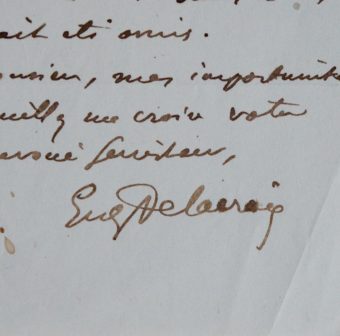 ait eté omis.
onsieur, mes importunité
euillez me croire votre
évoué serviteur,
Eug Delacroix